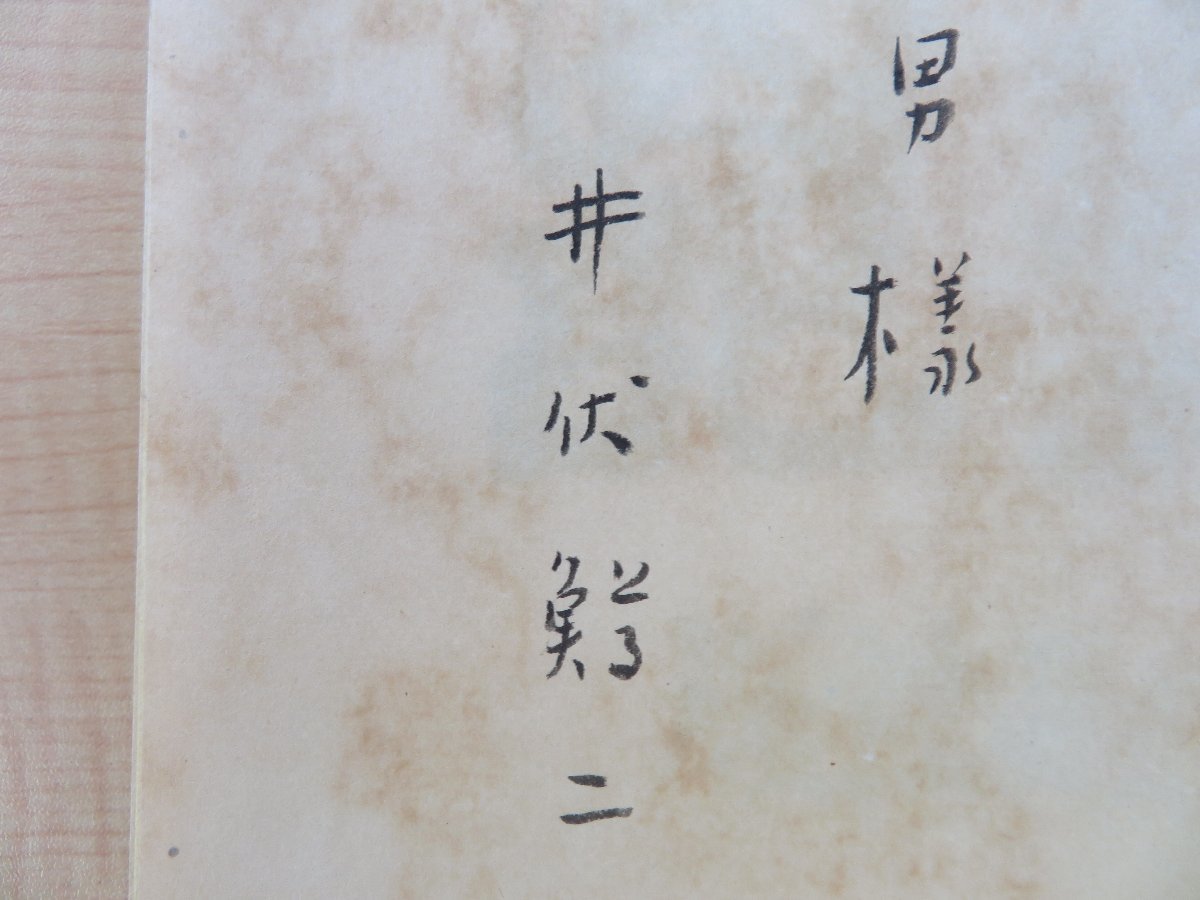 男様
井伏鱒二